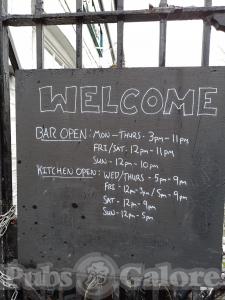 WELCOME
BAR OPEN: MON - THURS - 3pm - 11pm
FRI/SAT - 12pm - 11pm
SUN - 12pm - 10pm
KITCHEN OPEN: WED/THURS - 5pm - 9pm
FRI - 12pm-3pm / 5pm - 9pm
SAT - 12pm - 9pm
SUN - 12pm - 5pm
Pubs Galore